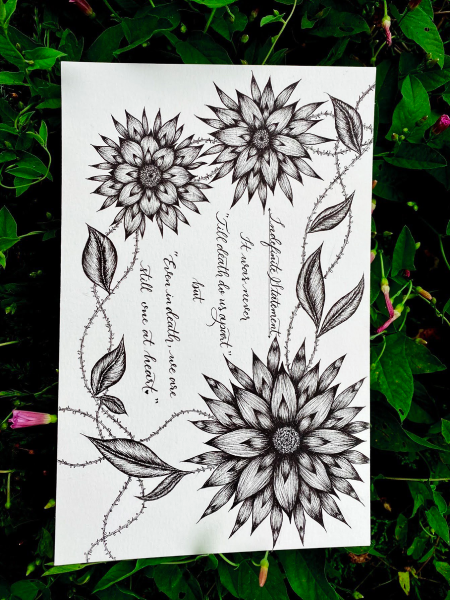 Indefinite Statement.
It was never
"Till death do us apart"
but
"Even in death, we are
still one at heart."